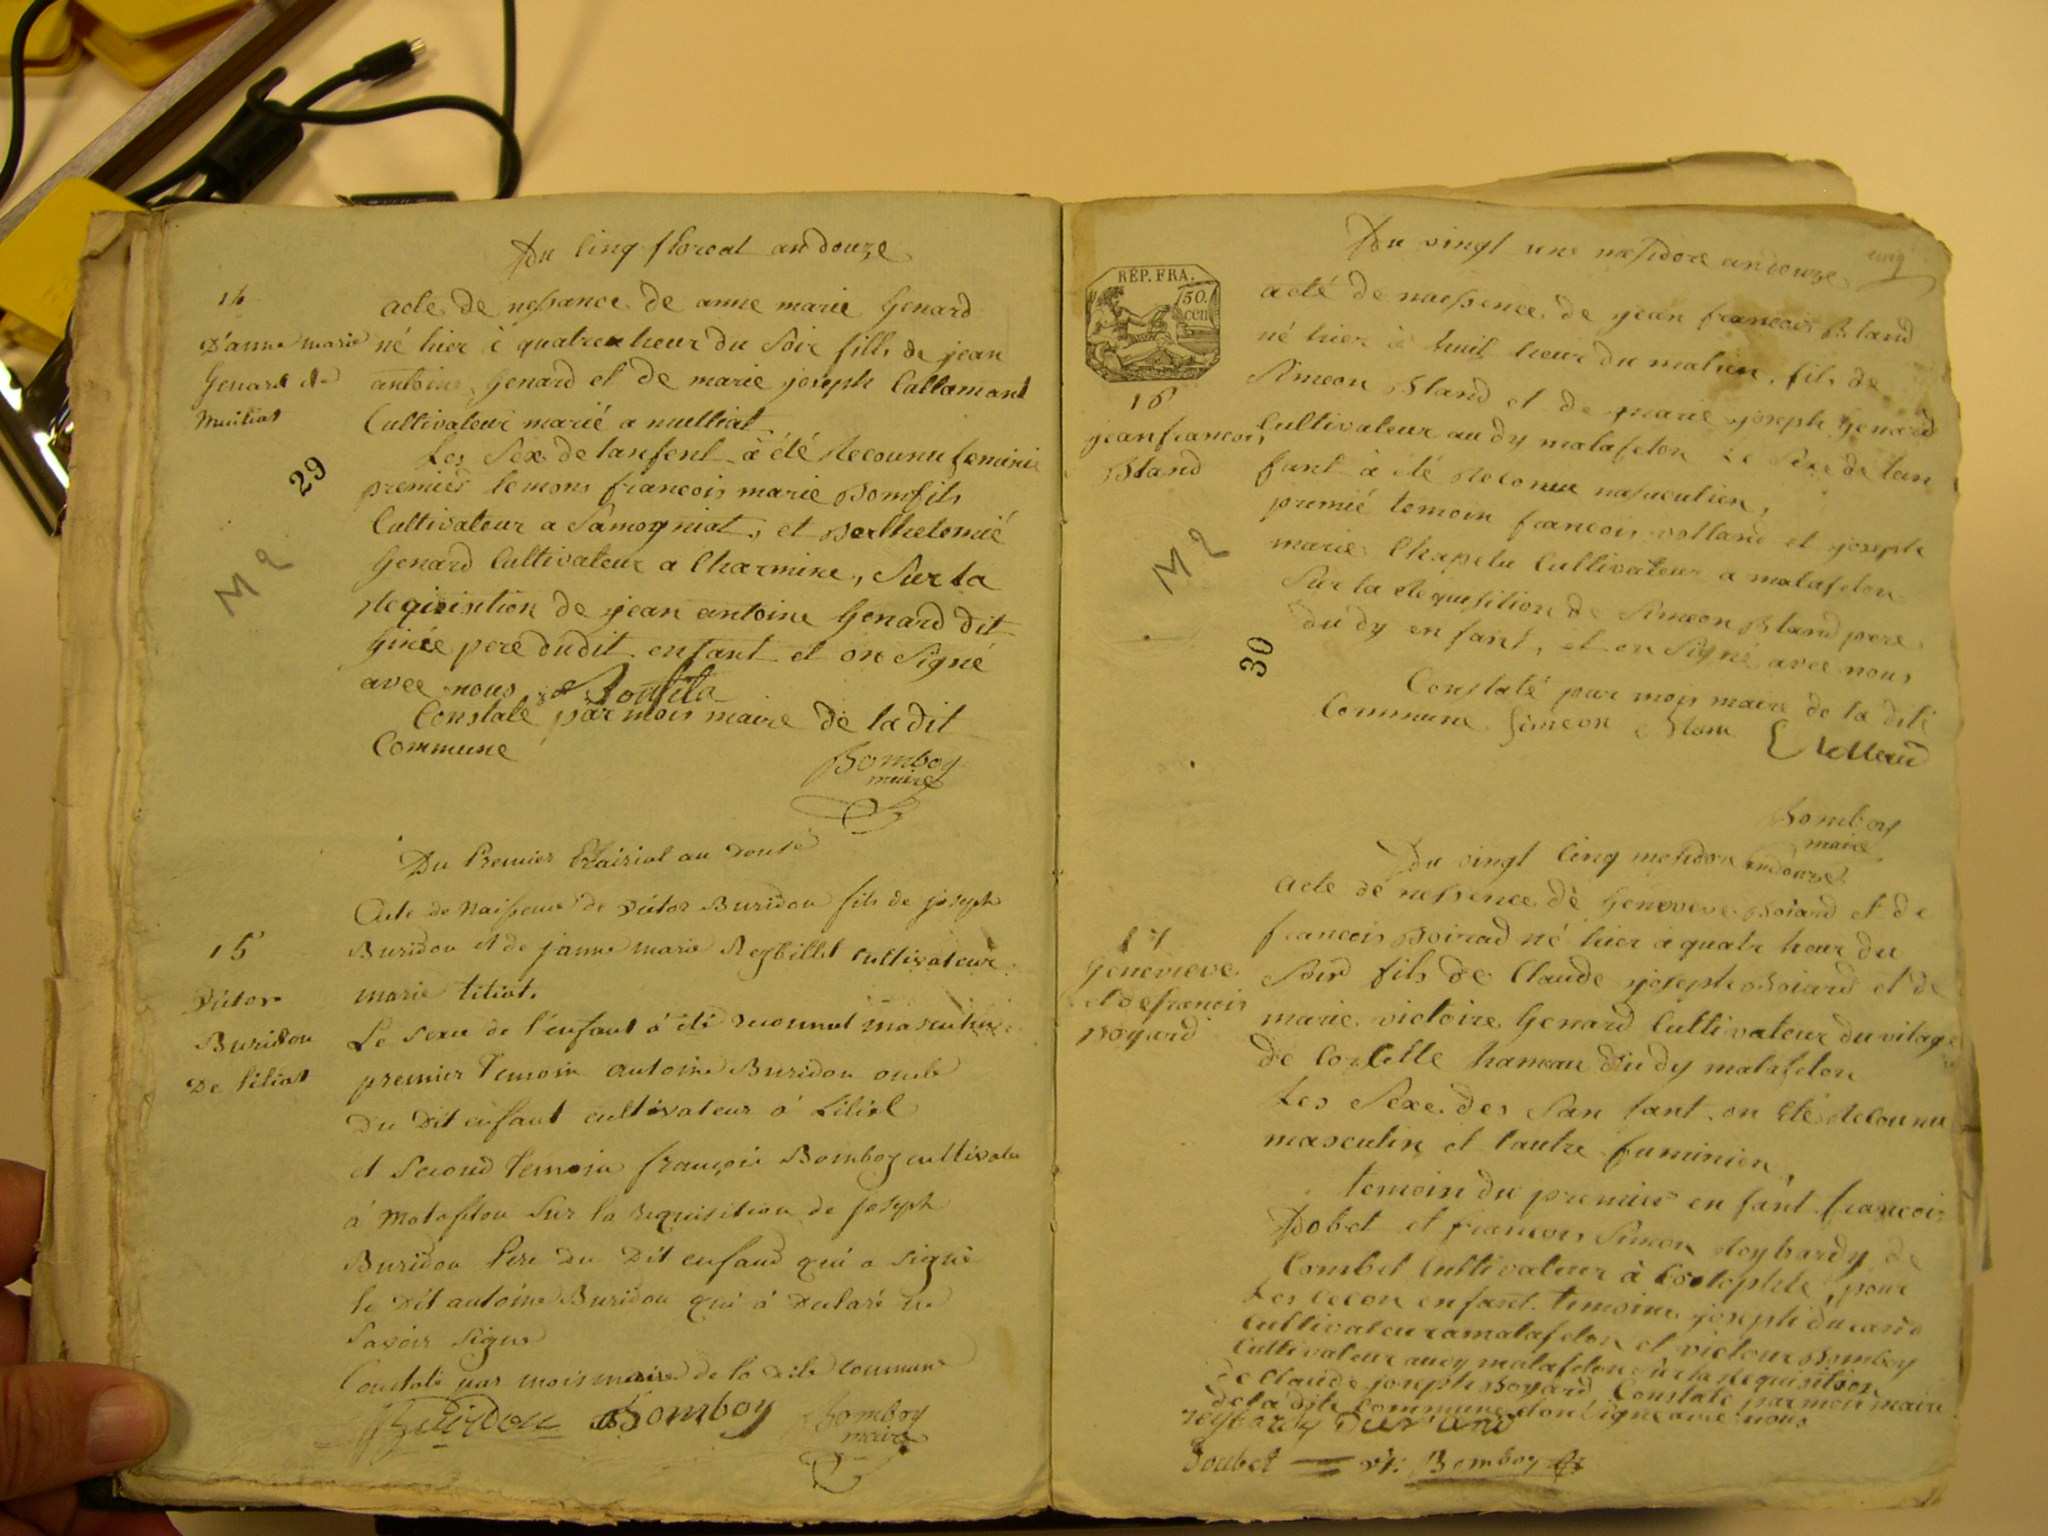 Du Cinq floreal an douze
14
D'anne marie
Genard de
Muitiat
29
M 2
acte de nessance de anne marie Genard
né hier à quatre heur du Soir fille de jean
antoine Genard et de marie joseph Callamand
Cultivateur marié a mulliat
Les Sexe de lanfent à été Recounu feminie
premier temons francois marie Bomfils
Cultivateur a Samogniat, et Barthelemié
Genard Cultivateur a Charmine, Sur la
Reqisistion de jean antoine Genard dit
pere dudit enfant et on Signé
avec nous Bonfils
Constate par mois maire de ladit
Commune
Bomboy
maire
Du Premier Prairial an douse
15
Victor
Buridon
De titiat
Acte de Naissence de Victor Buridon fils de joseph
Buridon et de janne marie Reybillet cultivateur
marie titiat.
Le sexe de l'enfant á été reconnut masculin
premier temoin antoine Buridon oncle
Du Dit enfant cultivateur á
et Second temoin françois Bomboy cultivateu
á Matafelon Sur la requisition de joseph
Buridon Pere Du Dit enfand qui a signé
le Dit antoine Buridon qui á Declaré ne
Savoir Signe
Constaté par mois maire de la dite commune
Buridon Bomboy Bomboy
maire
Du vingt une messidore an douze
RÉP. FRA.
50.
cen
16
jean francois
Bland
M 2
30
acté de naessence de jean francois Bland
né hier à huit heur du matien, fils de
Simeon Bland et de marie joseph Genard
Cultivateur au dy matafelon Le Sexe de lan
fant à été Reconue masuculien,
premié temoin francois volland et joseph
marie Chapelu Cultivateur a matafelon
Sur la Requisition de Simeon Bland pere
du dy enfant, et on Signé avec nous
Constaté par mois maire de la dite
Commune Simeon Blan Volland
Bomboy
maire
Du vingt Cinq messidor an douze
17
Genevieve
et de francois
Boyard
acte de nessence dé Geneveve Boiard et de
francois Boirad né hier a quatr heur du
Soir fils de Claude joseph Boiard et de
marie victoire Genard Cultivateur du vilage
de Corcelle hameau du dy matafelon
Les Sexe des San fant on Eté Recounu
masculin et lautre faminien,
temoin du premier en fant francois
Bobet et francois Simon Reybardy de
Combet Cultivateur à , pour
Les Cecon enfant temoins joseph ducand
Cultivateur amatafelon et victour Bomboy
Cultivateur audy matafelon Sur la Requisition
de Claude joseph Boyard Constaté par moi maire
de la dite Commune dont Signe avec nous
reybardy
Boubet Vr. Bomboy